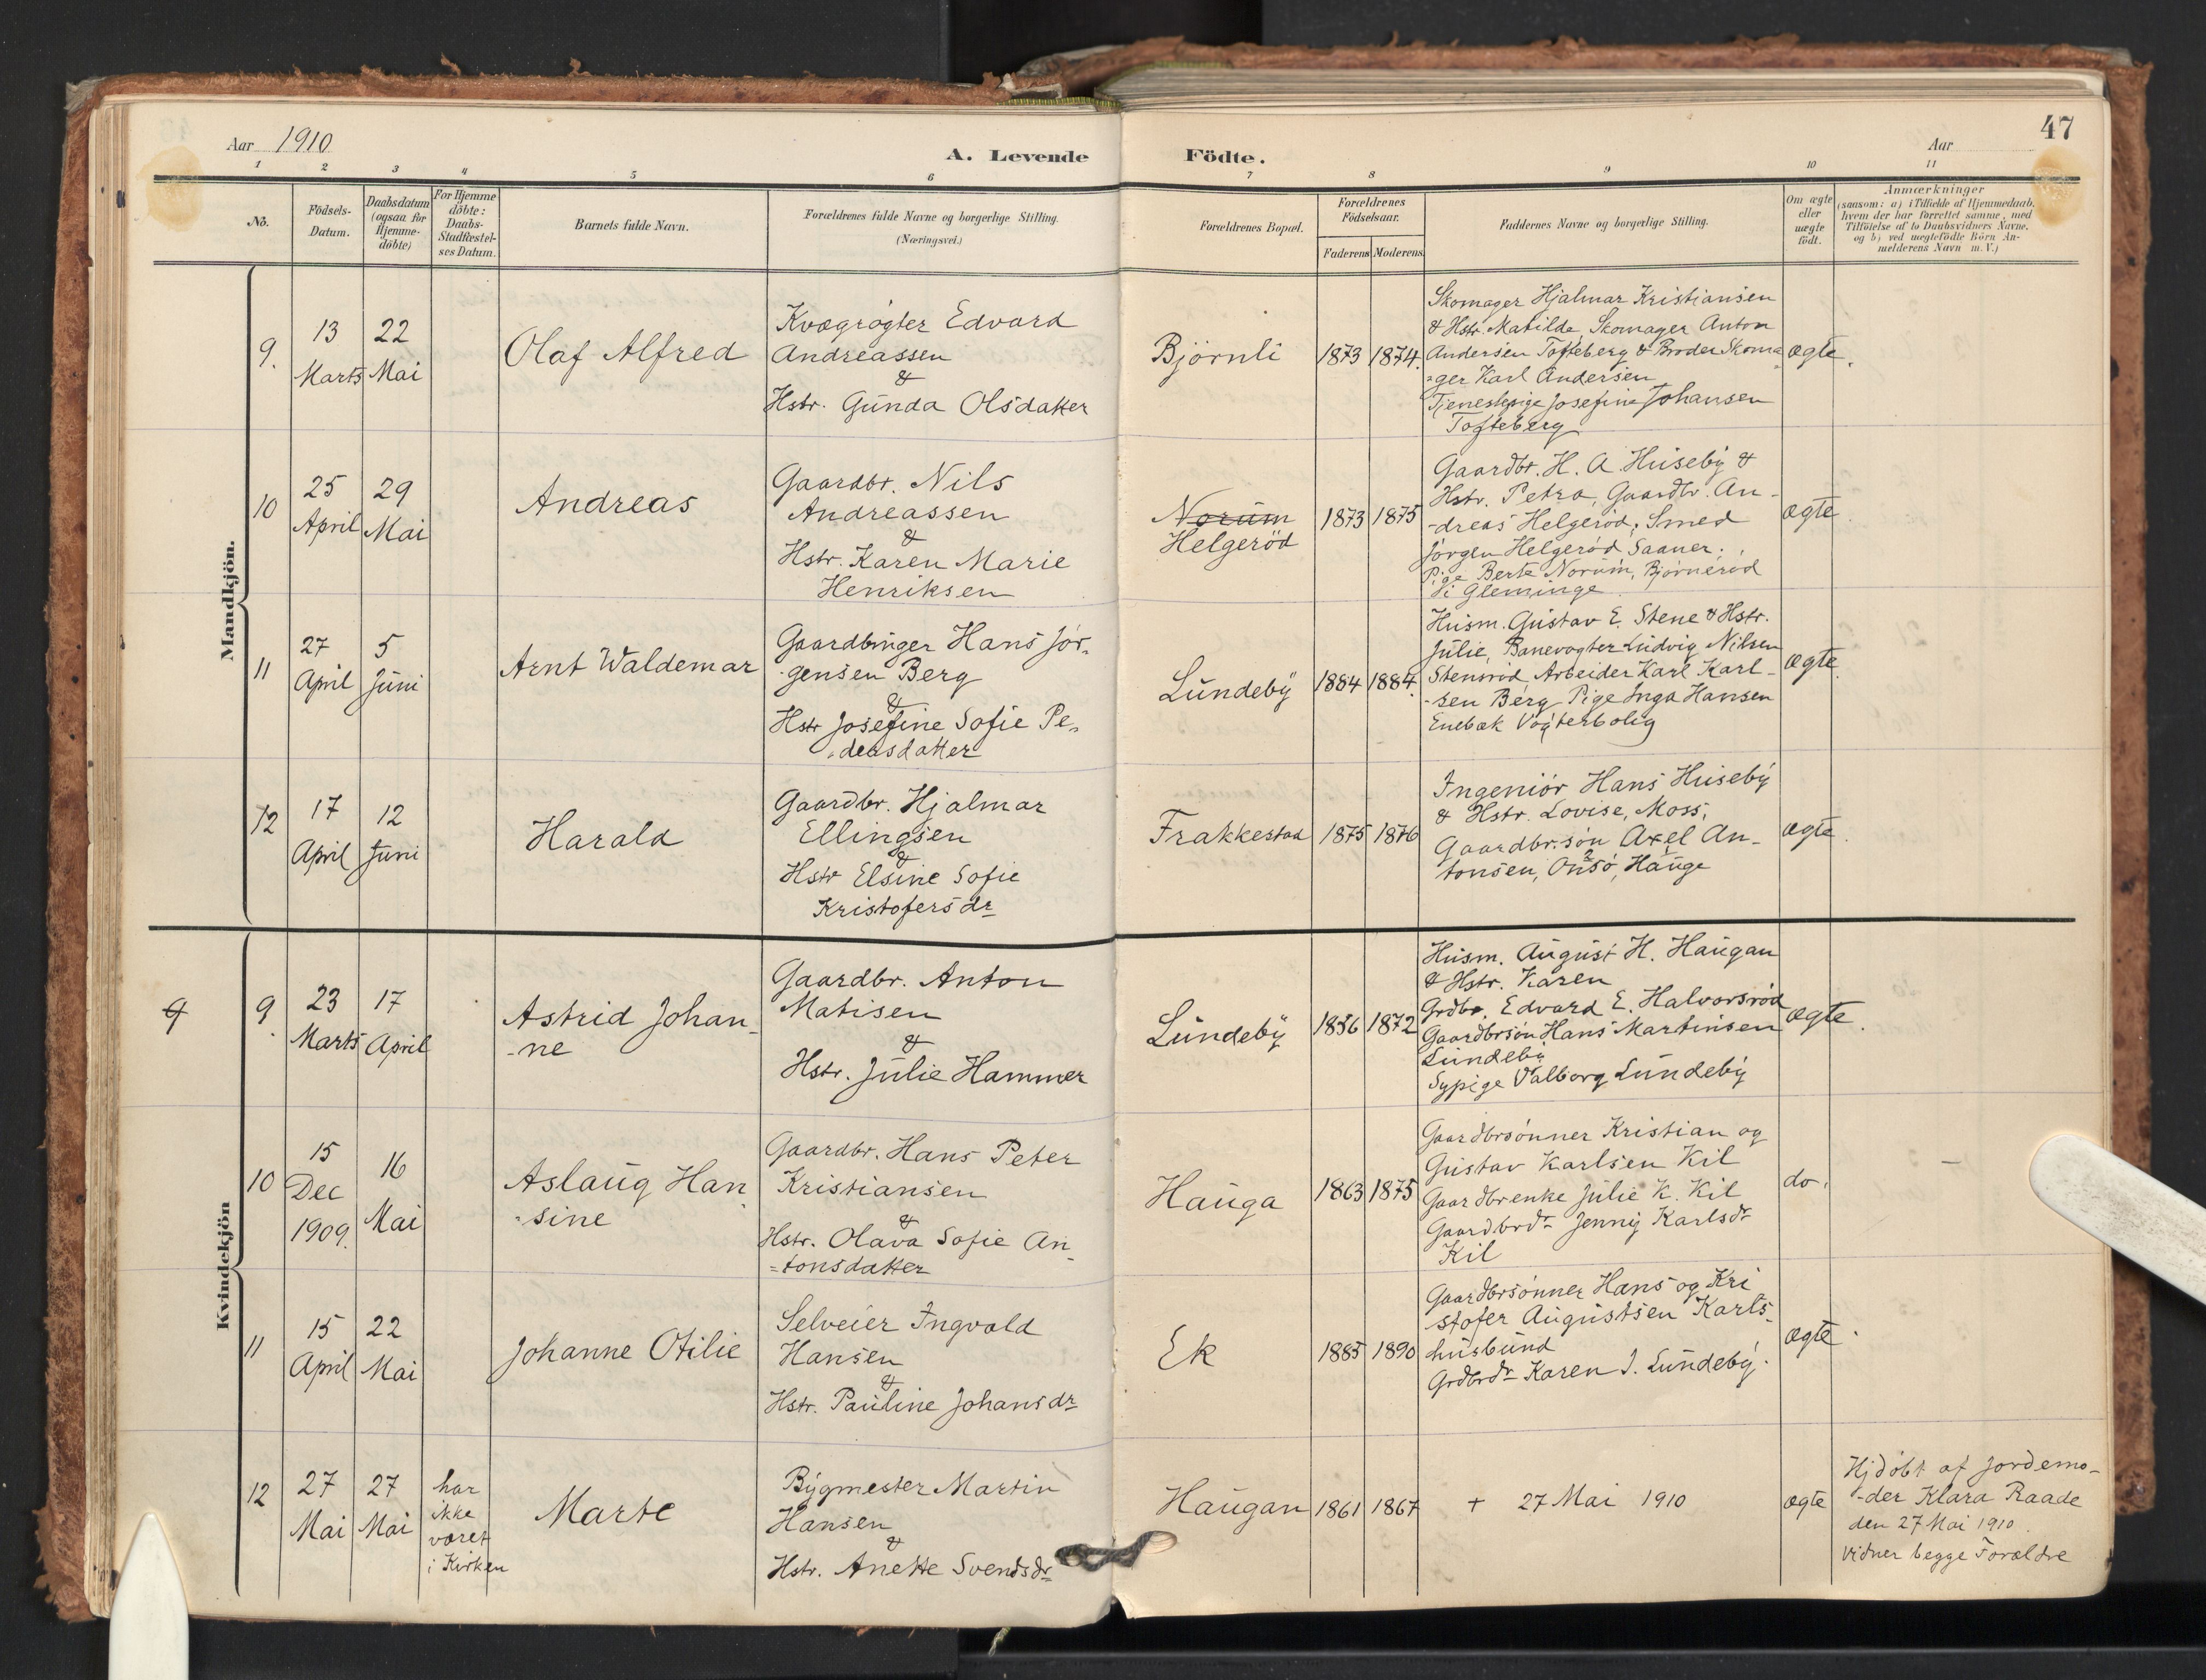 47
Aar 1910
A. Levende Födte.
Aar
1 2 3 4 5 6 7 8 9 10 11
Nö.
Födsels-
Datum.
Daabsdatum
(ogsaa for
Hjemme-
döbte)
For Hjemme
döbte:
Daabs-
Stadfæstel-
ses Datum.
Barnets fulde Navn.
Forældrenes fulde Navne og borgerlige Stilling.
(Næringsvei.)
Forældrenes Bopæl.
Forældrenes
Födselsaar.
Faderens Moderens
Faddernes Navne og borgerlige Stilling.
Om ægte
eller
uægte
födt.
Anmærkninger
(saasom: a) i Tilfælde af Hjemmedaab,
hvem der har forrettet samme, med
Tilföielse af to Daabsvidners Navne,
og b) ved uægtefödte Börn An-
melderens Navn m. V.)
Mandkjön.
9.
13
Marts
22
Mai
Olaf Alfred
Kvægrögter Edvard
Andreassen
&
Hstr. Gunda Olsdatter
Björnli
1873 1874.
Skomager Hjalmar Kristiansen
& Hstr. Matilde, Skomager Anton
Andersen Tofteberg & Broder Skoma
-ger Karl Andersen
Tjenestepige Josefine Johansen
Tofteberg
ægte.
10
25
April
29
Mai
Andreas
Gaardbr. Nils
Andreassen
&
Hstr. Karen Marie
Henriksen
Norum
Helgeröd
1873 1875
Gaardbr. H. A. Huseby &
Hstr. Petra, Gaardbr. An-
-dreas Helgeröd, Smed
Jörgen Helgeröd, Saaner.
Pige Berte Norum, Björneröd
i Gleminge
ægte.
11
27
April
5
Juni
Arnt Waldemar
Gaardbruger Hans Jör-
-gensen Berg
&
Hstr Josefine Sofie Pe-
-dersdatter
Lundeby
1884 1884.
Husm. Gustav E. Stene & Hstr.
Julie, Banevogter Ludvig Nilsen
Stensröd, Arbeider Karl Karl-
-sen Berg, Pige Inga Hansen
Enebæk Vogterbolig
ægte.
12
17
April
12
Juni
Harald
Gaardbr. Hjalmar
Ellingsen
&
Hstr Elsine Sofie
Kristofersdr
Frakkestad
1875 1876
Ingeniör Hans Huseby
& Hstr. Lovise, Moss,
Gaardbr.sön Axel An-
tonsen, Onsö, Hauge
ægte.
Kvindekjön
9
9.
23
Marts
17
April
Astrid Johan-
-ne
Gaardbr. Anton
Matisen
&
Hstr. Julie Hammer
Lundeby
1856 1872
Husm. August H. Haugan
& Hstr. Karen
Grdbr. Edvard E. Halvorsröd
Gaardbrsön Hans Martinsen
Lundeby
Sypige Valborg Lundeby
ægte.
10
15
Dec
1909.
16
Mai
Aslaug Han
-sine
Gaardbr. Hans Peter
Kristiansen
&
Hstr. Olava Sofie An-
=tonsdatter
Hauga
1863 1875
Gaardbrsönner Kristian og
Gustav Karlsen Kil
Gaardbrenke Julie K. Kil
Gaardbrdr Jenny Karlsdr
Kil
do.
11
15
April
22
Mai
Johanne Otilie
Selveier Ingvald
Hansen
&
Hstr. Pauline Johansdr
Ek
1885 1890
Gaardbrsönner Hans og Kri
stofer Augustsen Karls-
husbund
Grdbrdr Karen J. Lundeby.
ægte.
12
27
Mai
27
Mai
har
ikke
været
i Kirken
Marte
Bygmester Martin
Hansen
&
Hstr. Anette Svendsdr
Haugan
1861 1867
+ 27 Mai 1910
ægte
Hjdöbt af Jordemo-
-der Klara Raade
den 27 Mai 1910.
Vidner begge Forældre